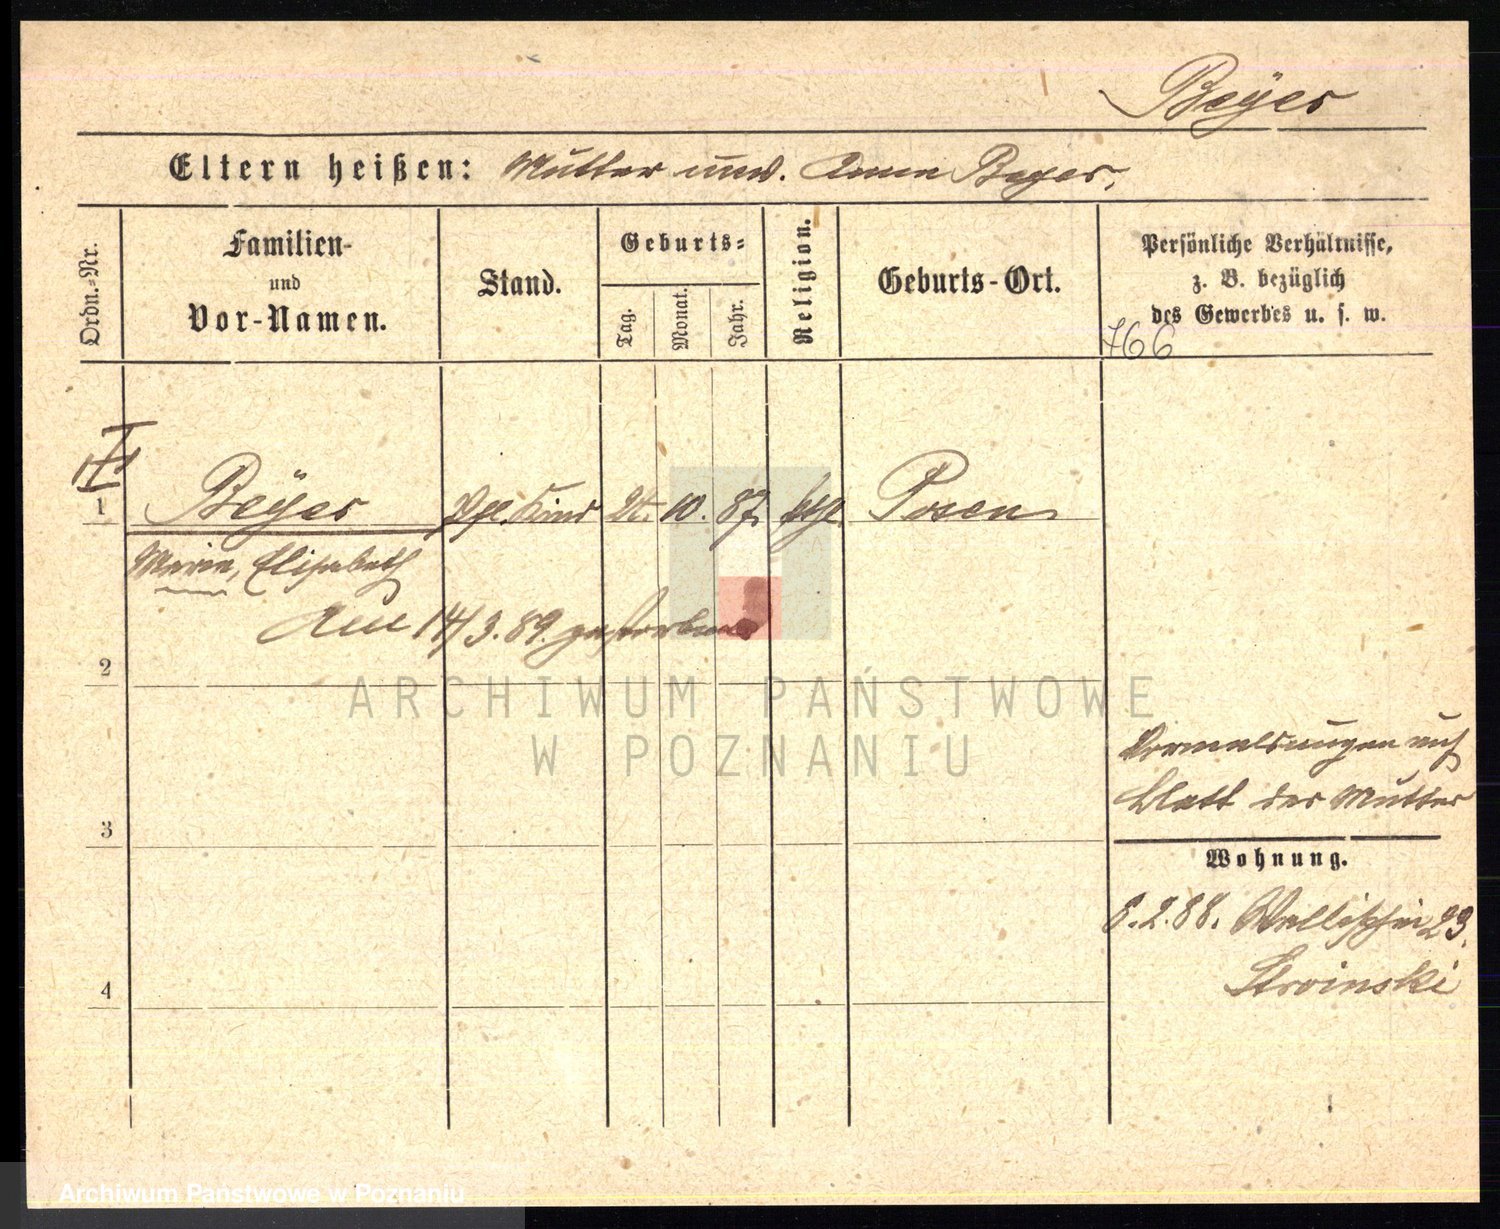 Beyer
Eltern heißen: Mutter unv. Anna Beyer.
Ordn.-Nr.
Familien-
und
Vor-Namen.
Stand.
Geburts-
Tag.
Monat.
Jahr.
Religion.
Geburts-Ort.
Persönliche Verhältnisse,
z. B. bezüglich
des Gewerbes u. s. w.
766
1 Beyer Pfl. Kind 24. 10. 87. kthl Posen
Marie, Elisabeth
Am 14/3.89. gestorben
2
ARCHIWUM PAŃSTWOWE
W POZNANIU
Vormeldungen auf
Blatt der Mutter
3
Wohnung.
8.2.88. Wallischei 23.
Stroinski
4
Archiwum Państwowe w Poznaniu